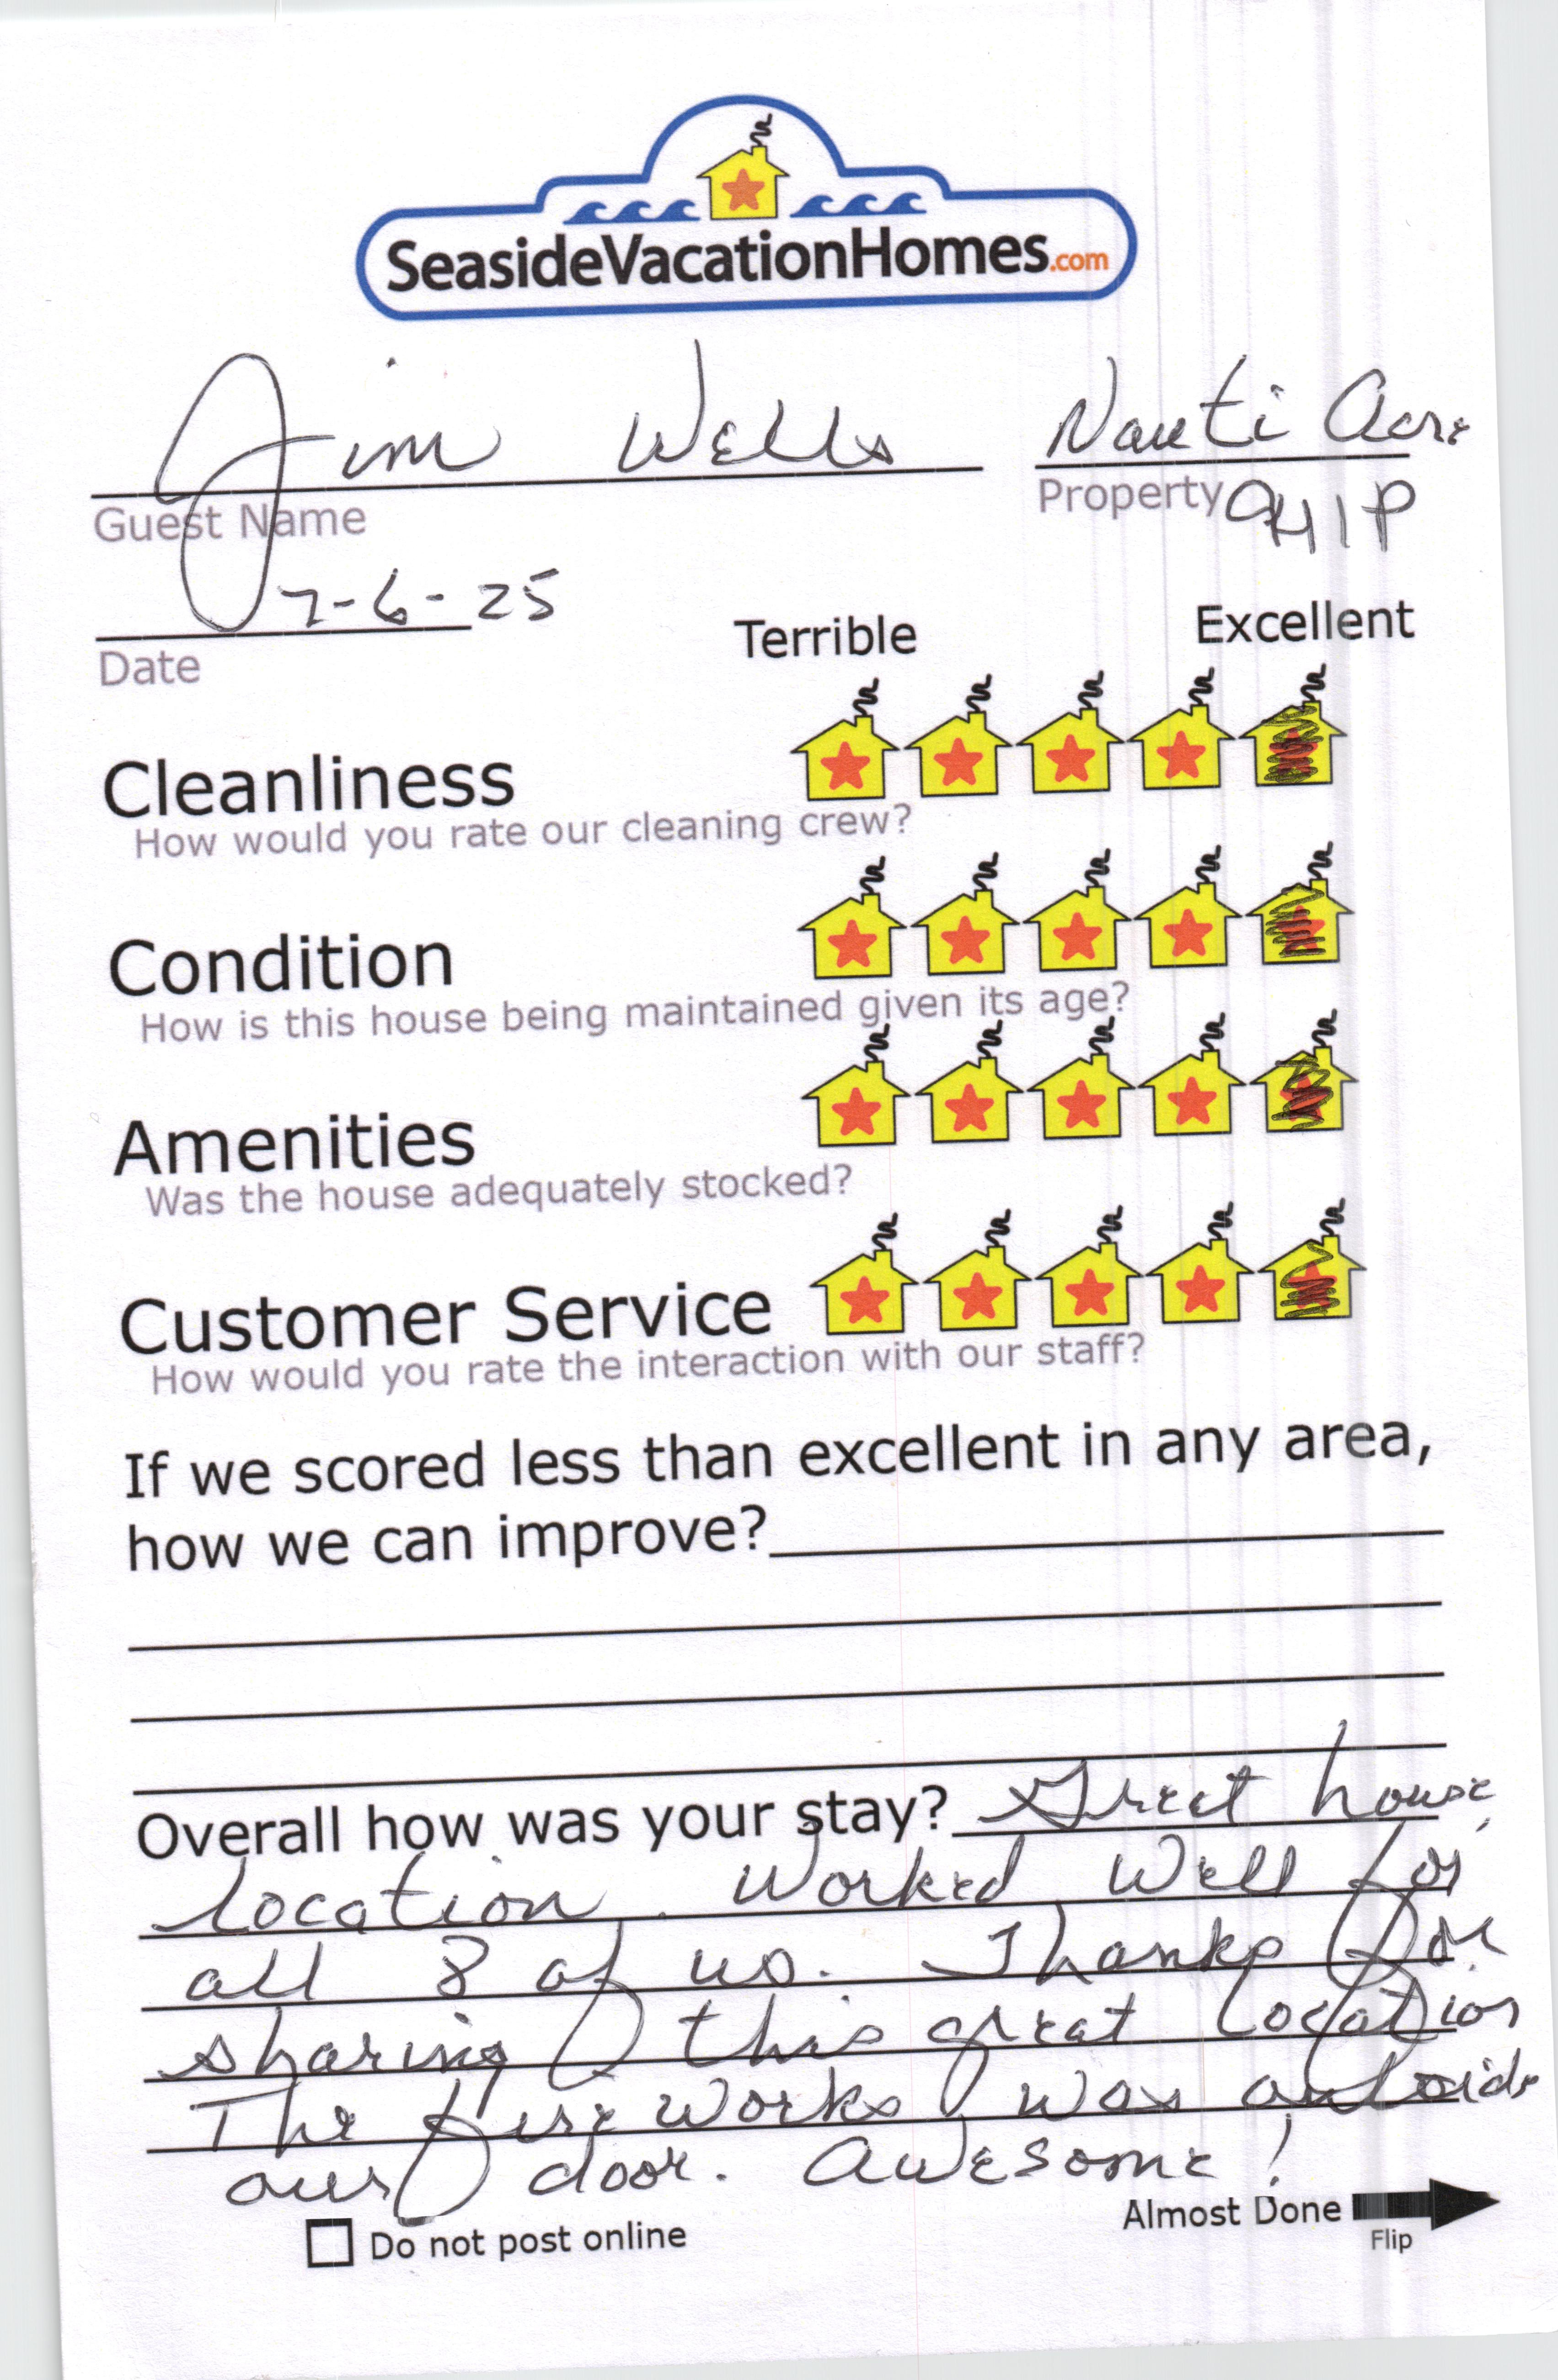 SeasideVacationHomes.com
Jim Wells Nauti Acre
Guest Name Property 941P
7-6-25
Date
Terrible Excellent
Cleanliness
How would you rate our cleaning crew?
Condition
How is this house being maintained given its age?
Amenities
Was the house adequately stocked?
Customer Service
How would you rate the interaction with our staff?
If we scored less than excellent in any area,
how we can improve?
Overall how was your stay? Great house,
location. Worked well for
all 8 of us. Thanks for
sharing this great location
The fireworks was outside
our door. Awesome!
Almost Done
Do not post online
Flip